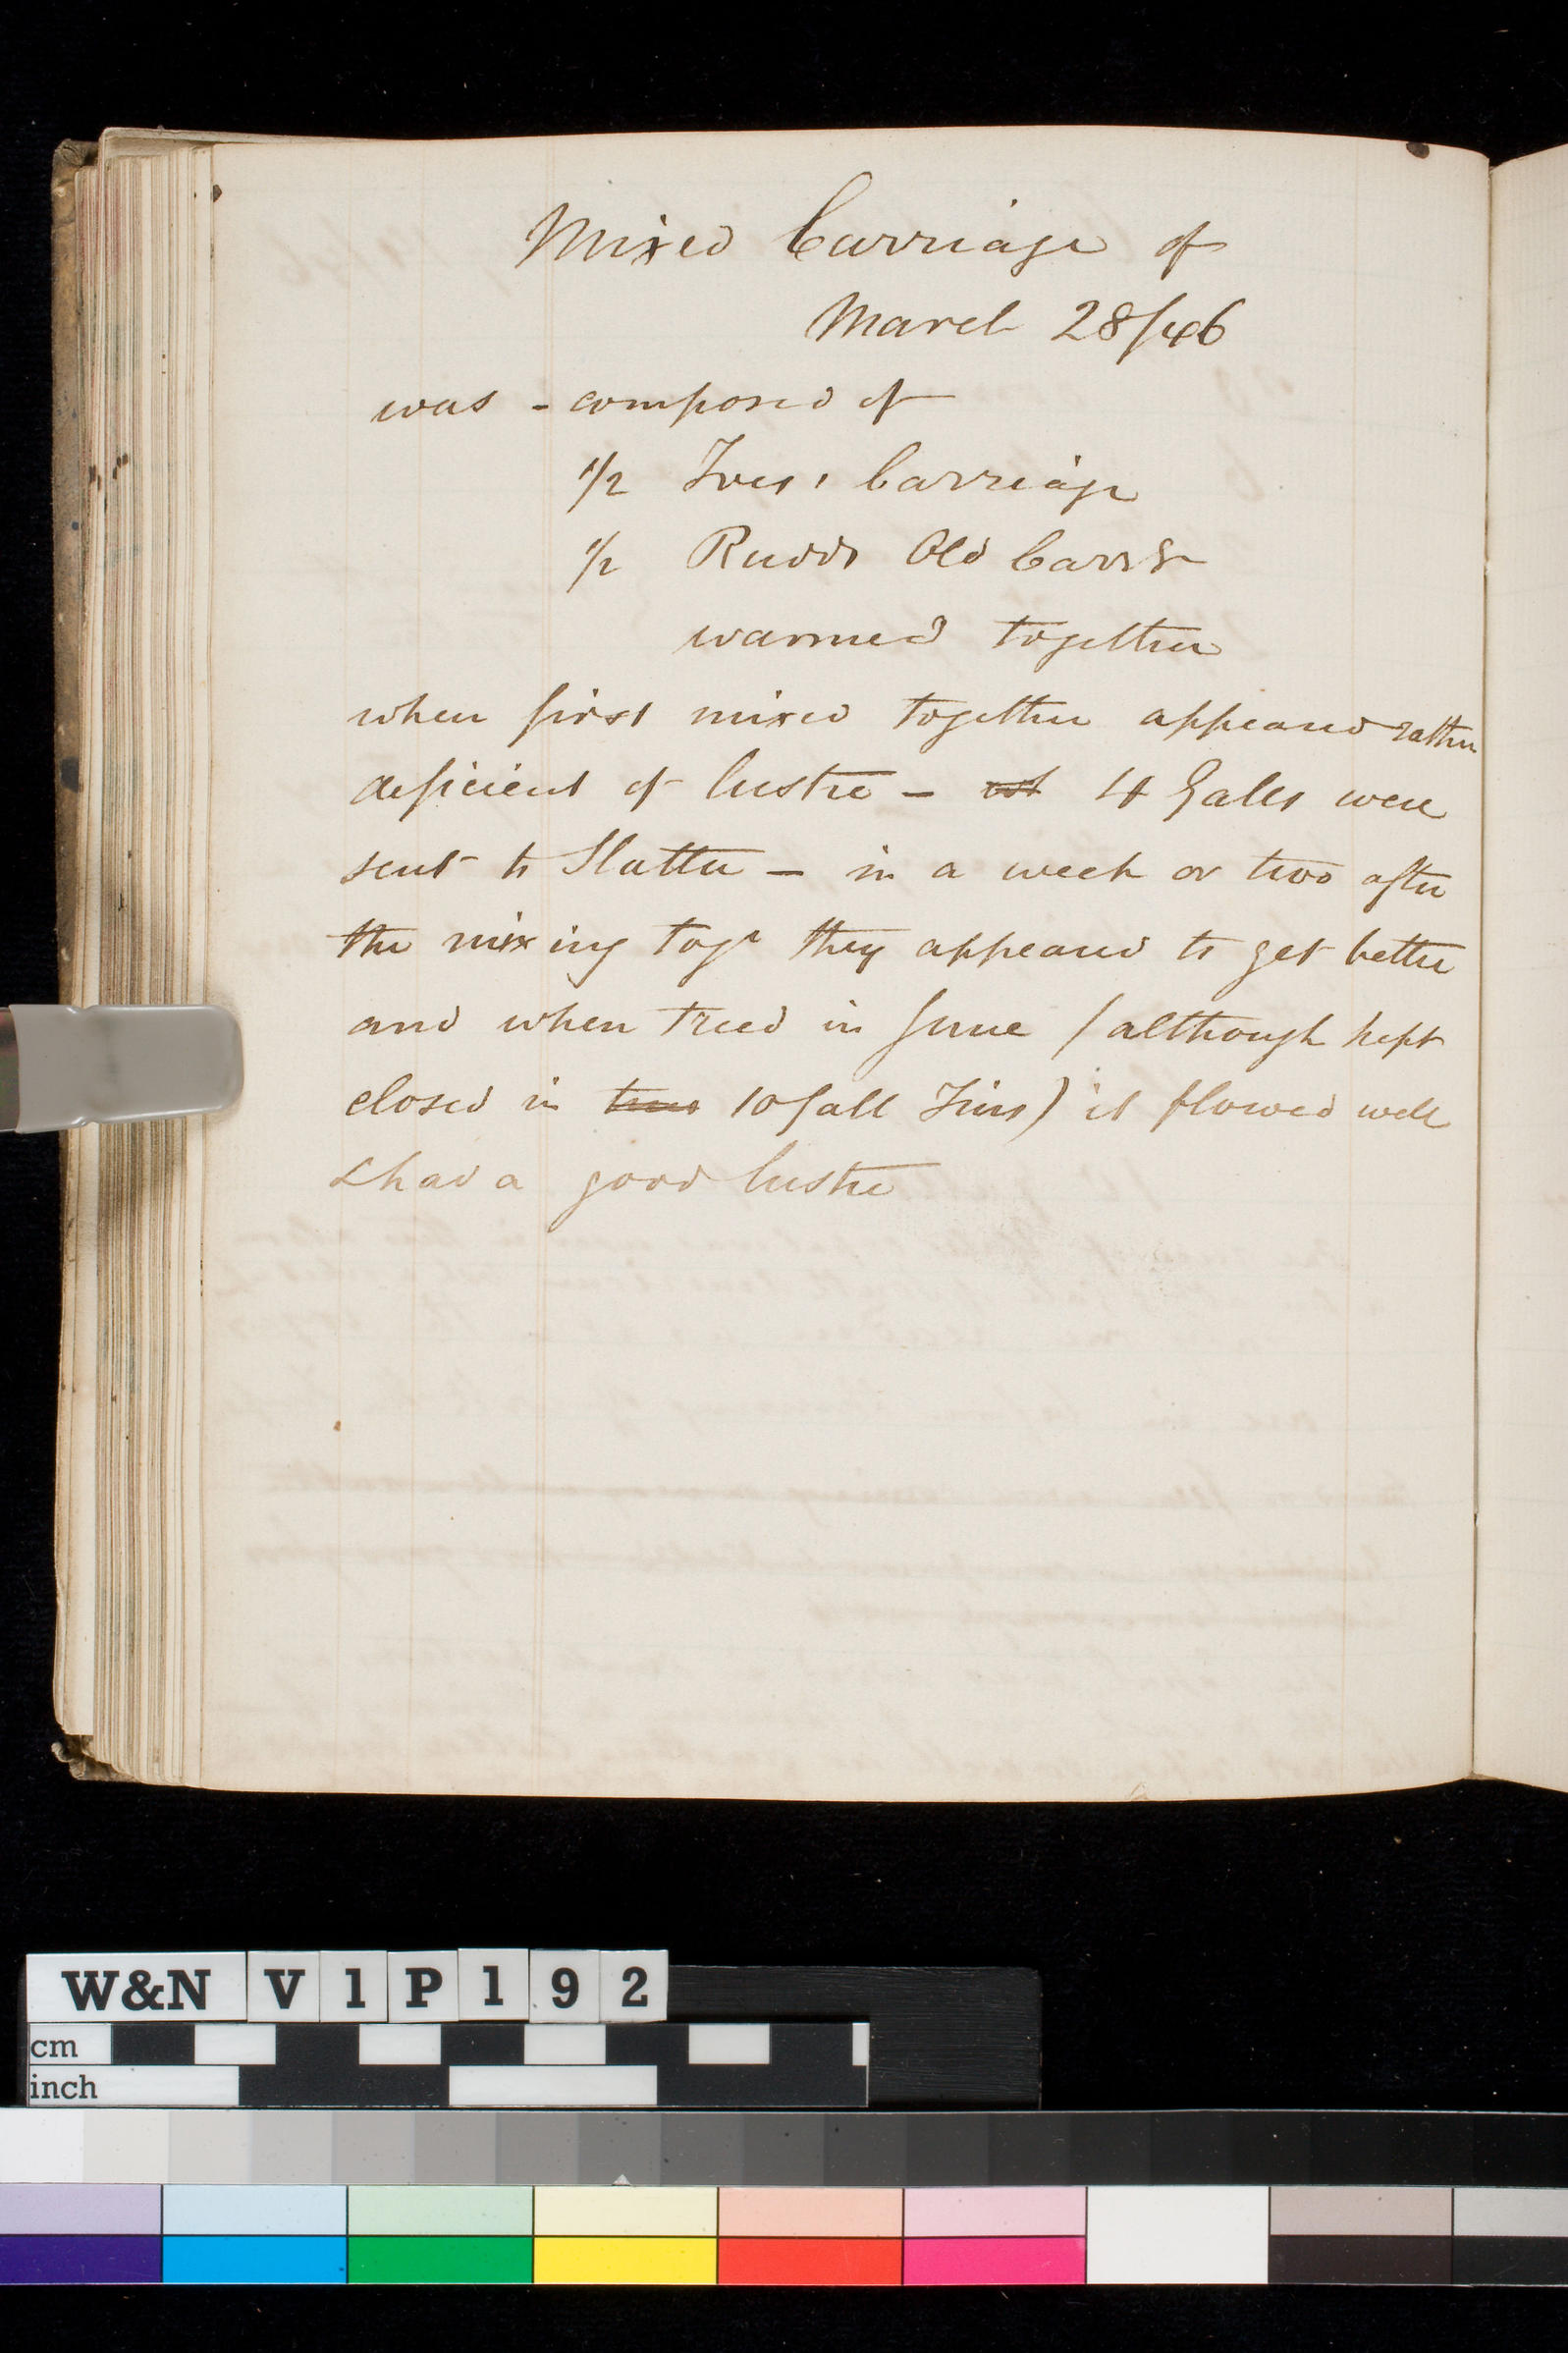 Mixed Carriage of
March 28/46
was - composed of
1/2 Ives' Carriage
1/2 Rudds Old Carrge
warmed together
when first mixed together appeared rather
deficient of lustre - 4 Galls were
sent to Slatter - in a week or two after
the mixing togr they appeared to get better
and when tried in June (although kept
closed in 10 Gall Tins) it flowed well
& had a good lustre
W&N V1P192
cm
inch